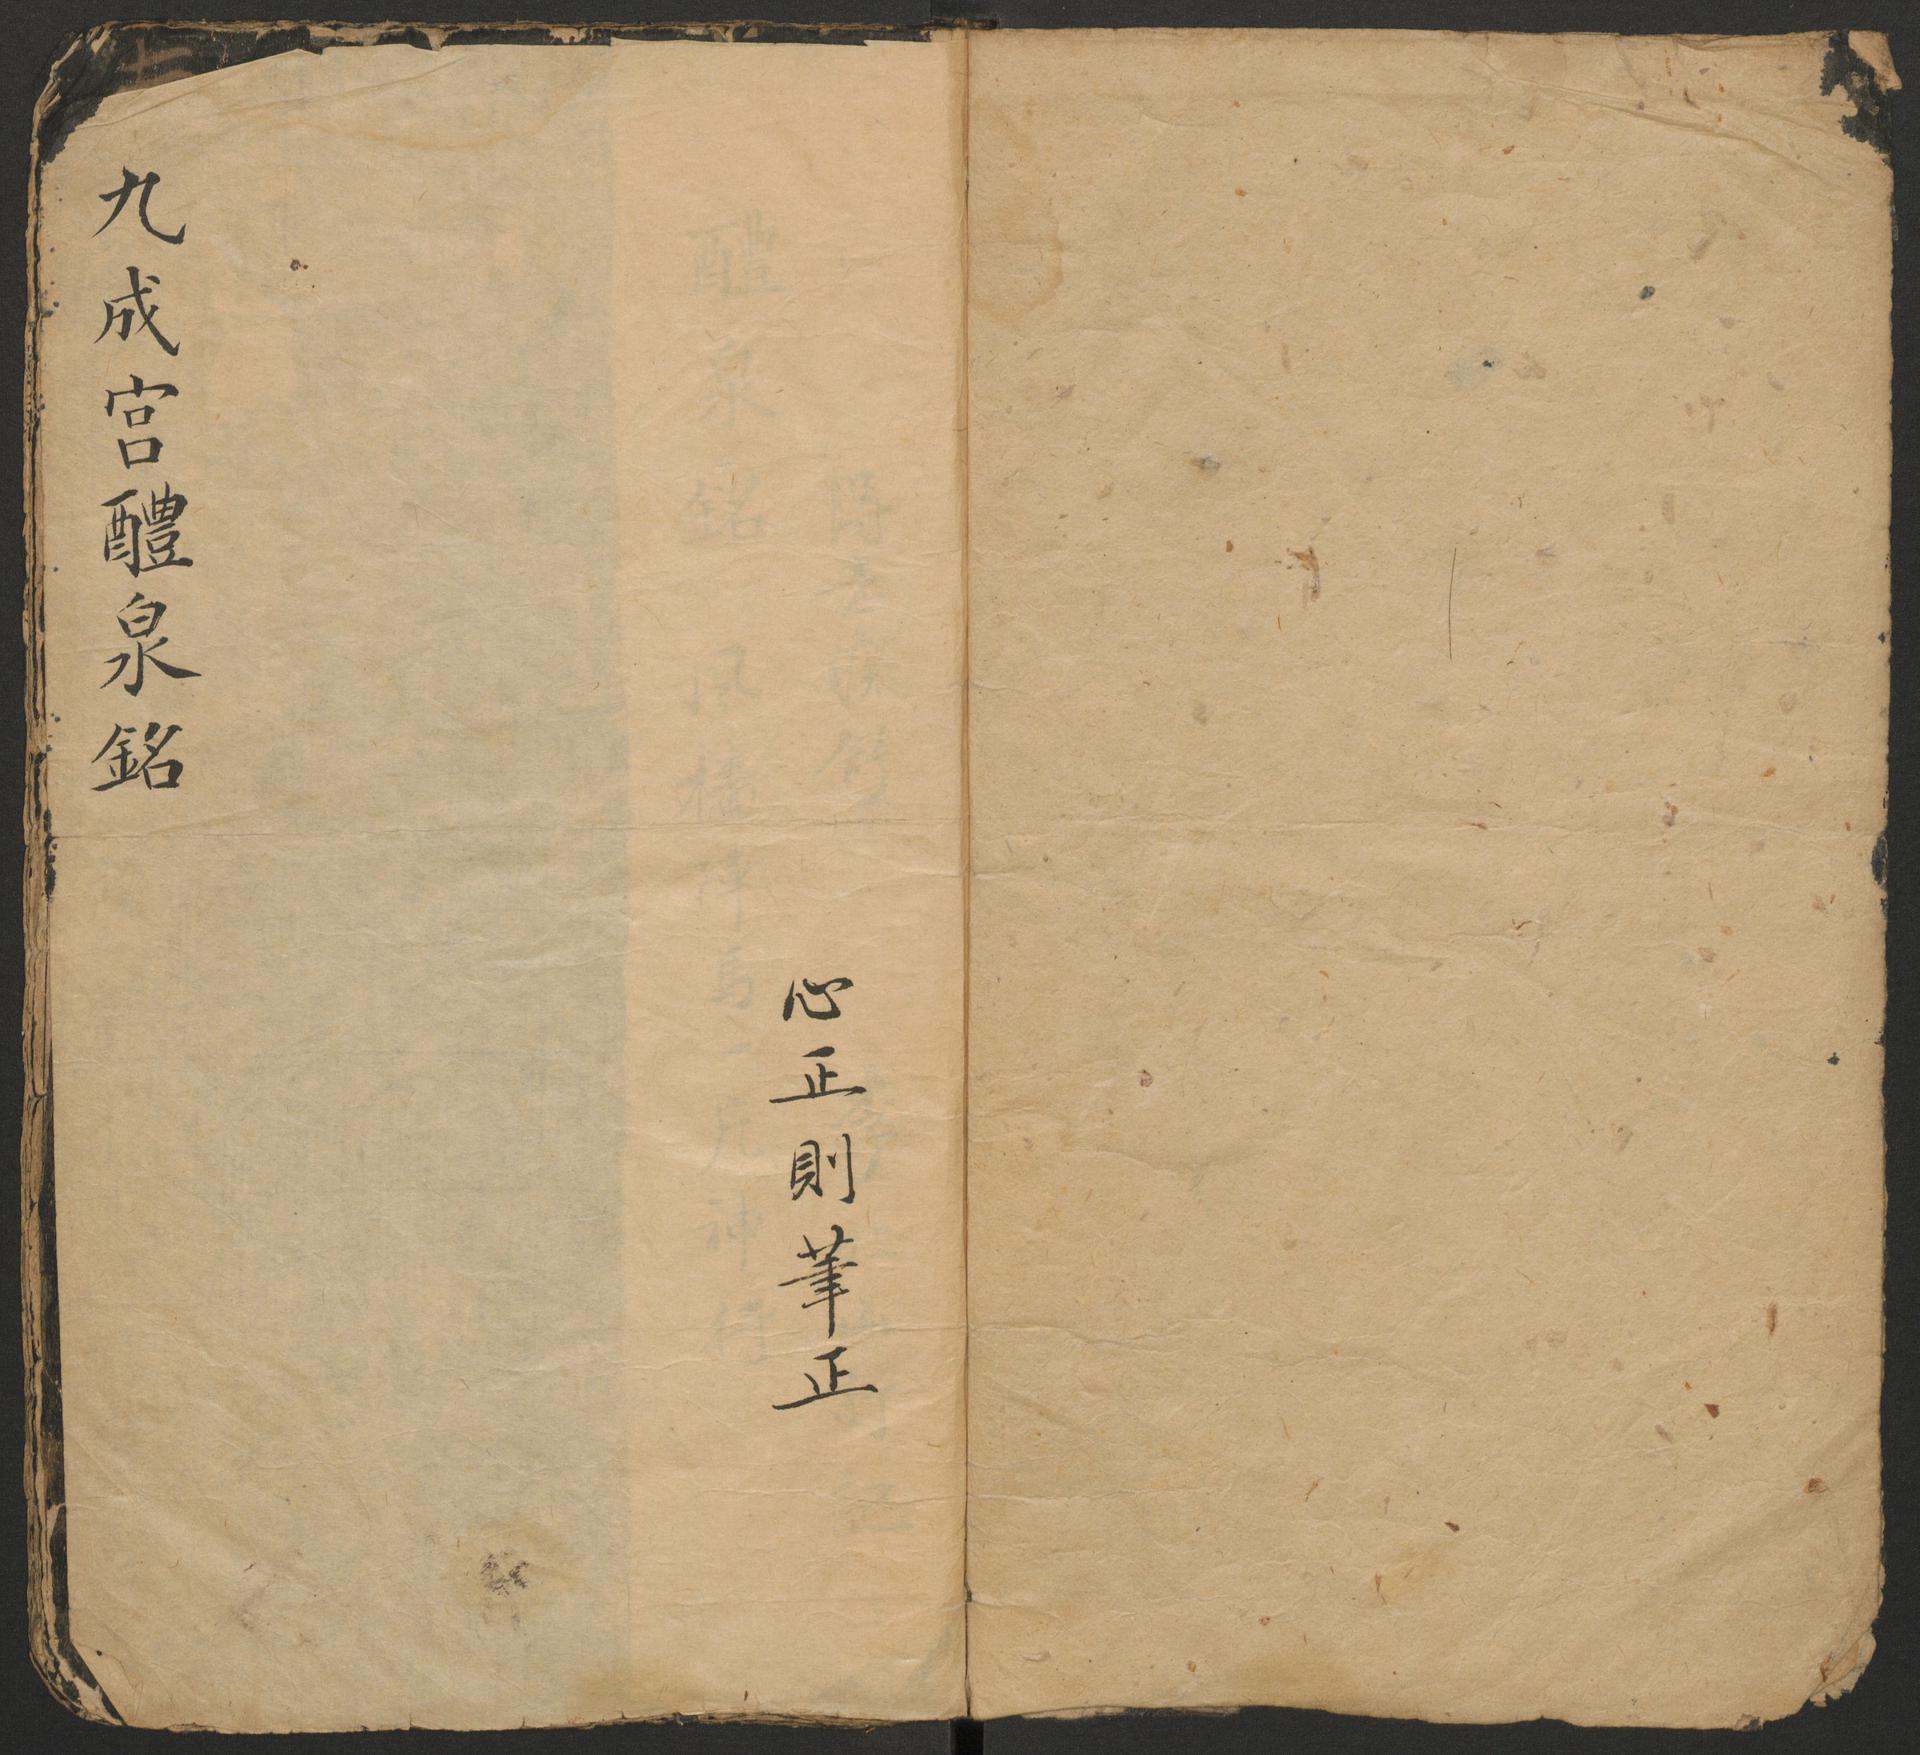 心正則筆正
九成宮醴泉銘